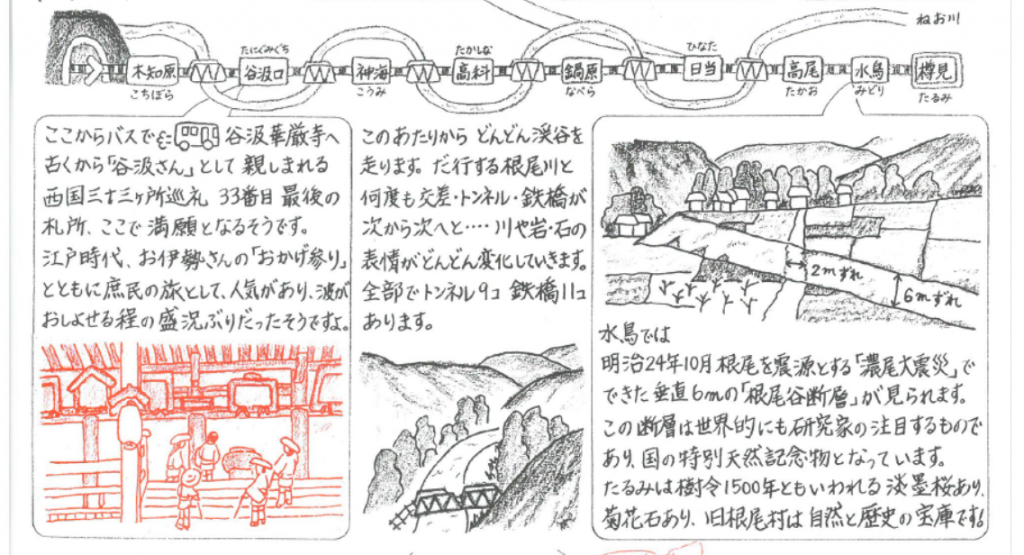 ねお川
たにぐみぐち
たかしな
ひなた
木知原
谷汲口
神海
高科
鍋原
日当
高尾
水鳥
樽見
こちぼら
こうみ
なべら
たかお
みどり
たるみ
ここからバスで 谷汲華厳寺へ
古くから「谷汲さん」として 親しまれる
西国三十三ヶ所巡礼 33番目 最後の
札所、ここで満願となるそうです。
江戸時代、お伊勢さんの「おかげ参り」
とともに庶民の旅として、人気があり、波が
おしよせる程の盛況ぶりだったそうですよ。
このあたりから どんどん渓谷を
走ります。だ行する根尾川と
何度も交差・トンネル・鉄橋が
次から次へと‥‥川や岩・石の
表情がどんどん変化していきます。
全部でトンネル9コ 鉄橋11コ
あります。
2mずれ
6mずれ
水鳥では
明治24年10月 根尾を震源とする「濃尾大震災」で
できた垂直6mの「根尾谷断層」が見られます。
この断層は世界的にも研究家の注目するもので
あり、国の特別天然記念物となっています。
たるみは樹令1500年ともいわれる 淡墨桜あり、
菊花石あり、旧根尾村は自然と歴史の宝庫です。